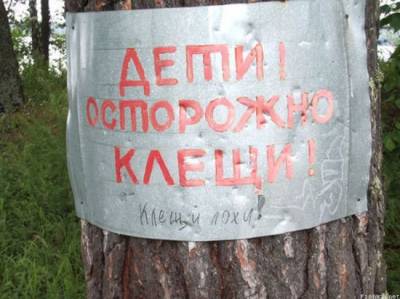 ДЕТИ!
ОСТОРОЖНО
КЛЕЩИ!
Клещи лохи!